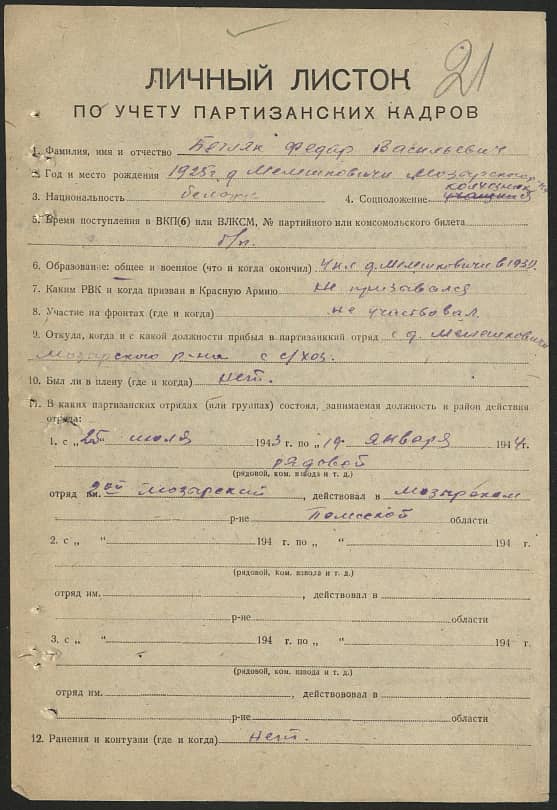 21
ЛИЧНЫЙ ЛИСТОК
ПО УЧЕТУ ПАРТИЗАНСКИХ КАДРОВ
1. Фамилия, имя и отчество Бегляк Федар Васильевич
2. Год и место рождения 1925 г. д Мелешковичи Мозырского р-на
3. Национальность белорус 4. Соцположение колхозник
5. Время поступления в ВКП(б) или ВЛКСМ, № партийного или комсомольского билета
б/п.
6. Образование: общее и военное (что и когда окончил) 4 кл д. Мелешковичи в 1939.
7. Каким РВК и когда призван в Красную Армию не призывался
8. Участие на фронтах (где и когда) не участвовал.
9. Откуда, когда и с какой должности прибыл в партизанский отряд с д. Мелешковичи
Мозырского р-на с с/хоз.
10. Был ли в плену (где и когда) нет.
11. В каких партизанских отрядах (или группах) состоял, занимаемая должность и район действия
отряда:
1. с „25 июля 1943 г. по „ 19 „ января 1944 г.
рядовой
(рядовой, ком. взвода и т. д.)
отряд им. 2ой Мозырский, действовал в Мозырском
р-не Полесской области
2. с „ “ 194 г. по „ “ 194 г.
(рядовой, ком. взвода и т. д.)
отряд им. , действовал в
р-не области
3. с „ “ 194 г. по „ “ 194 г.
(рядовой, ком. взвода и т. д.)
отряд им. , действововал в
р-не области
12. Ранения и контузии (где и когда) нет.